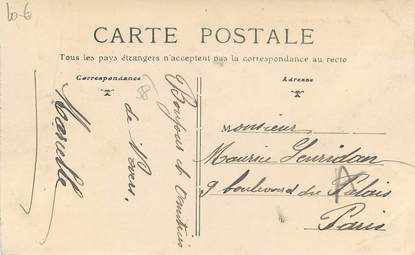 CARTE POSTALE
Tous les pays étrangers n'acceptent pas la correspondance au recto
Correspondance
Adresse
Bonjour de
de
Marcelle
Monsieur
Maurice
9 boulevard du Palais
Paris